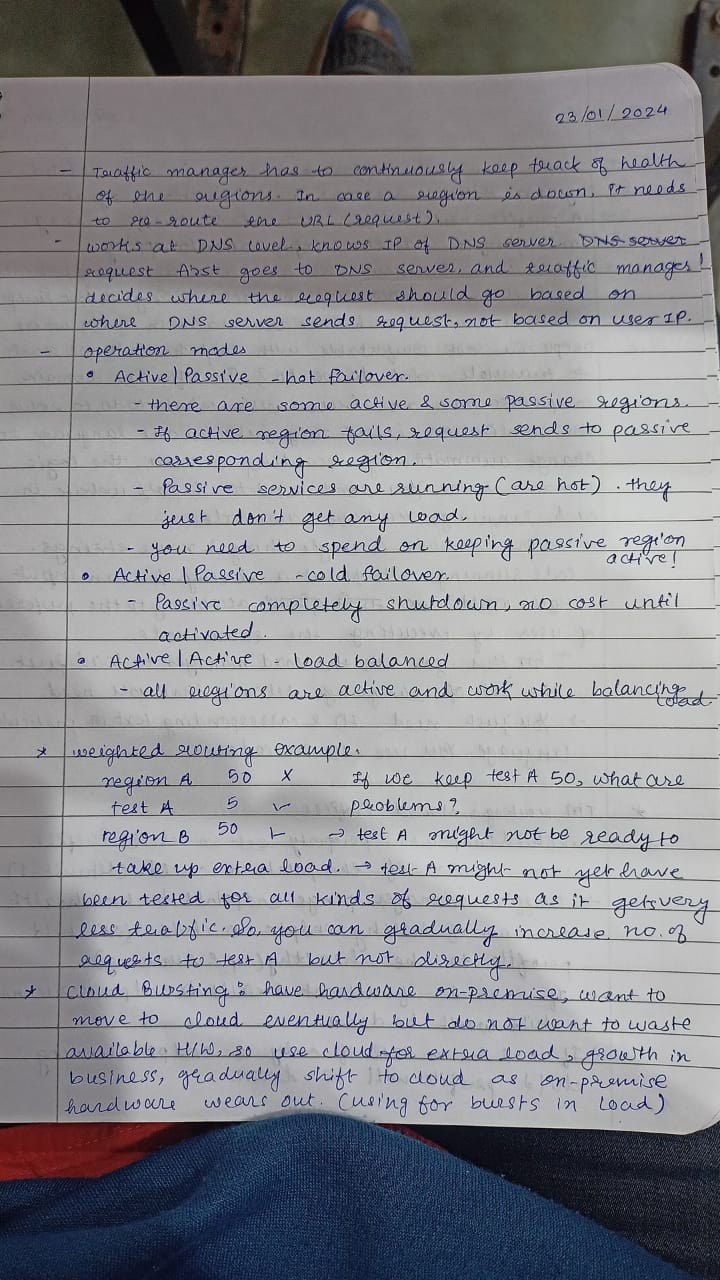 23/01/2024
- Traffic manager has to continuously keep track of health
of the regions. In case a region is down, it needs
to re-route the URL (request).
- works at DNS level, knows IP of DNS server. DNS server
request first goes to DNS server, and traffic manager!
decides where the request should go based on
where DNS server sends request, not based on user IP.
- operation modes
• Active | Passive - hot failover.
- there are some active & some passive regions.
- If active region fails, request sends to passive
corresponding region.
- Passive services are running (are hot). they
just don't get any load.
- you need to spend on keeping passive region
active!
• Active | Passive - cold failover.
- Passive completely shutdown, no cost until
activated.
• Active | Active - load balanced
- all regions are active and work while balancing
load.
* weighted routing example.
region A 50 x If we keep test A 50, what are
test A 5 ✓ problems?
region B 50 ✓ → test A might not be ready to
take up extra load. → test A might not yet have
been tested for all kinds of requests as it gets very
less traffic. So, you can gradually increase no. of
requests to test A but not directly.
* Cloud Bursting : have hardware on-premise, want to
move to cloud eventually but do not want to waste
available H/W, so use cloud for extra load, growth in
business, gradually shift to cloud as on-premise
hardware wears out. (using for bursts in load)